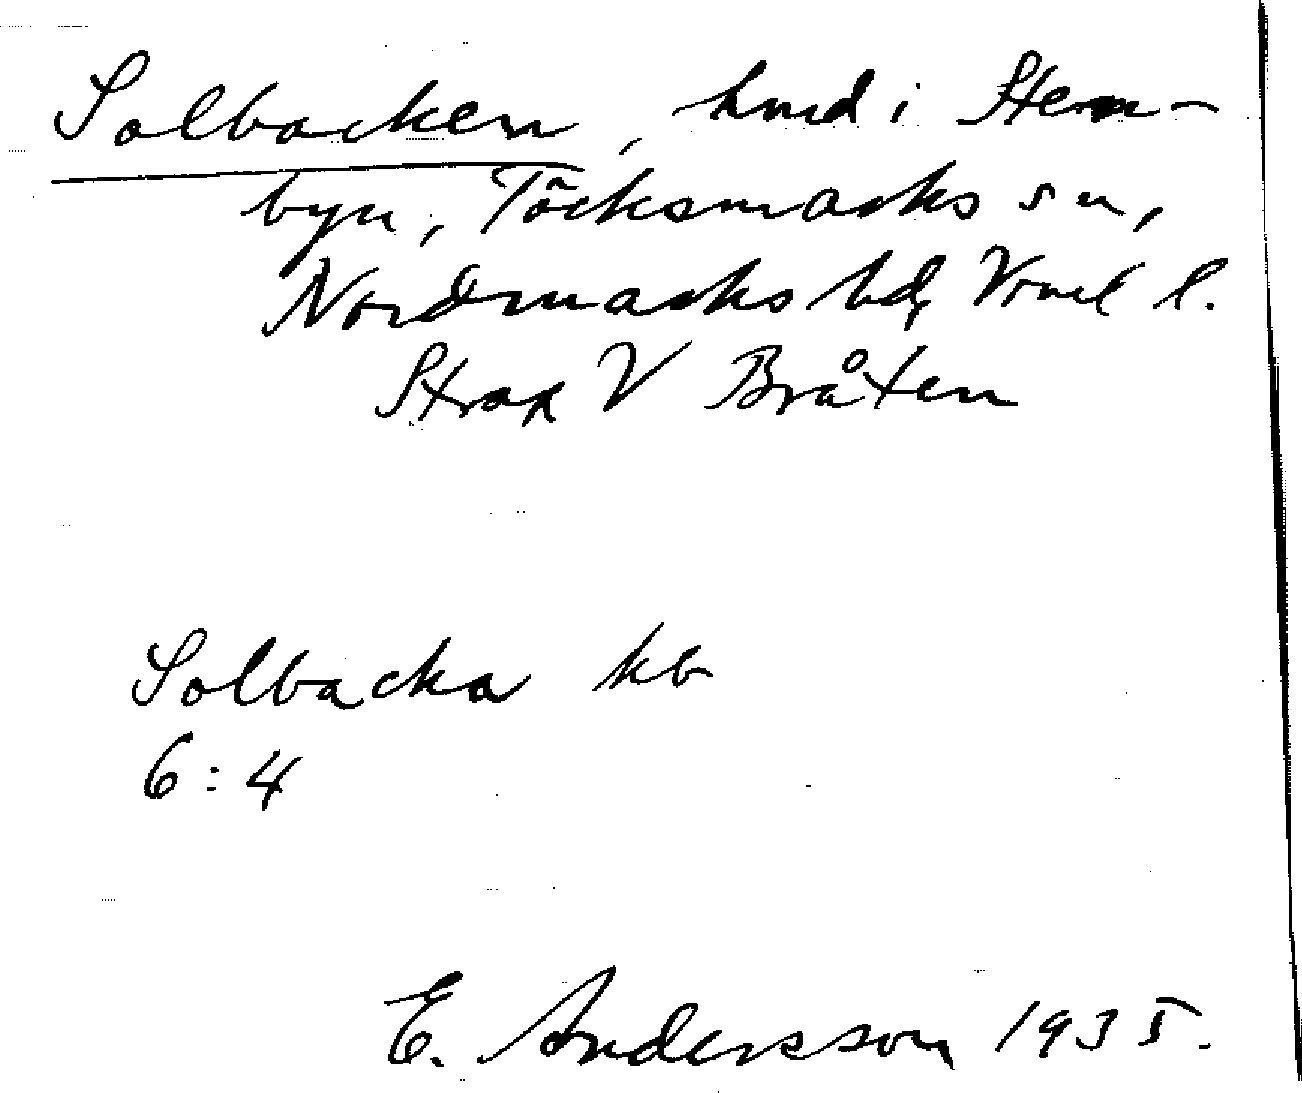 Solbacken, hmd i Sten-
byn, Töcksmarks sn,
Nordmarks hd, Vrml l.
Strax V Bråten
Solbacka kb
6:4
E. Andersson 1935.